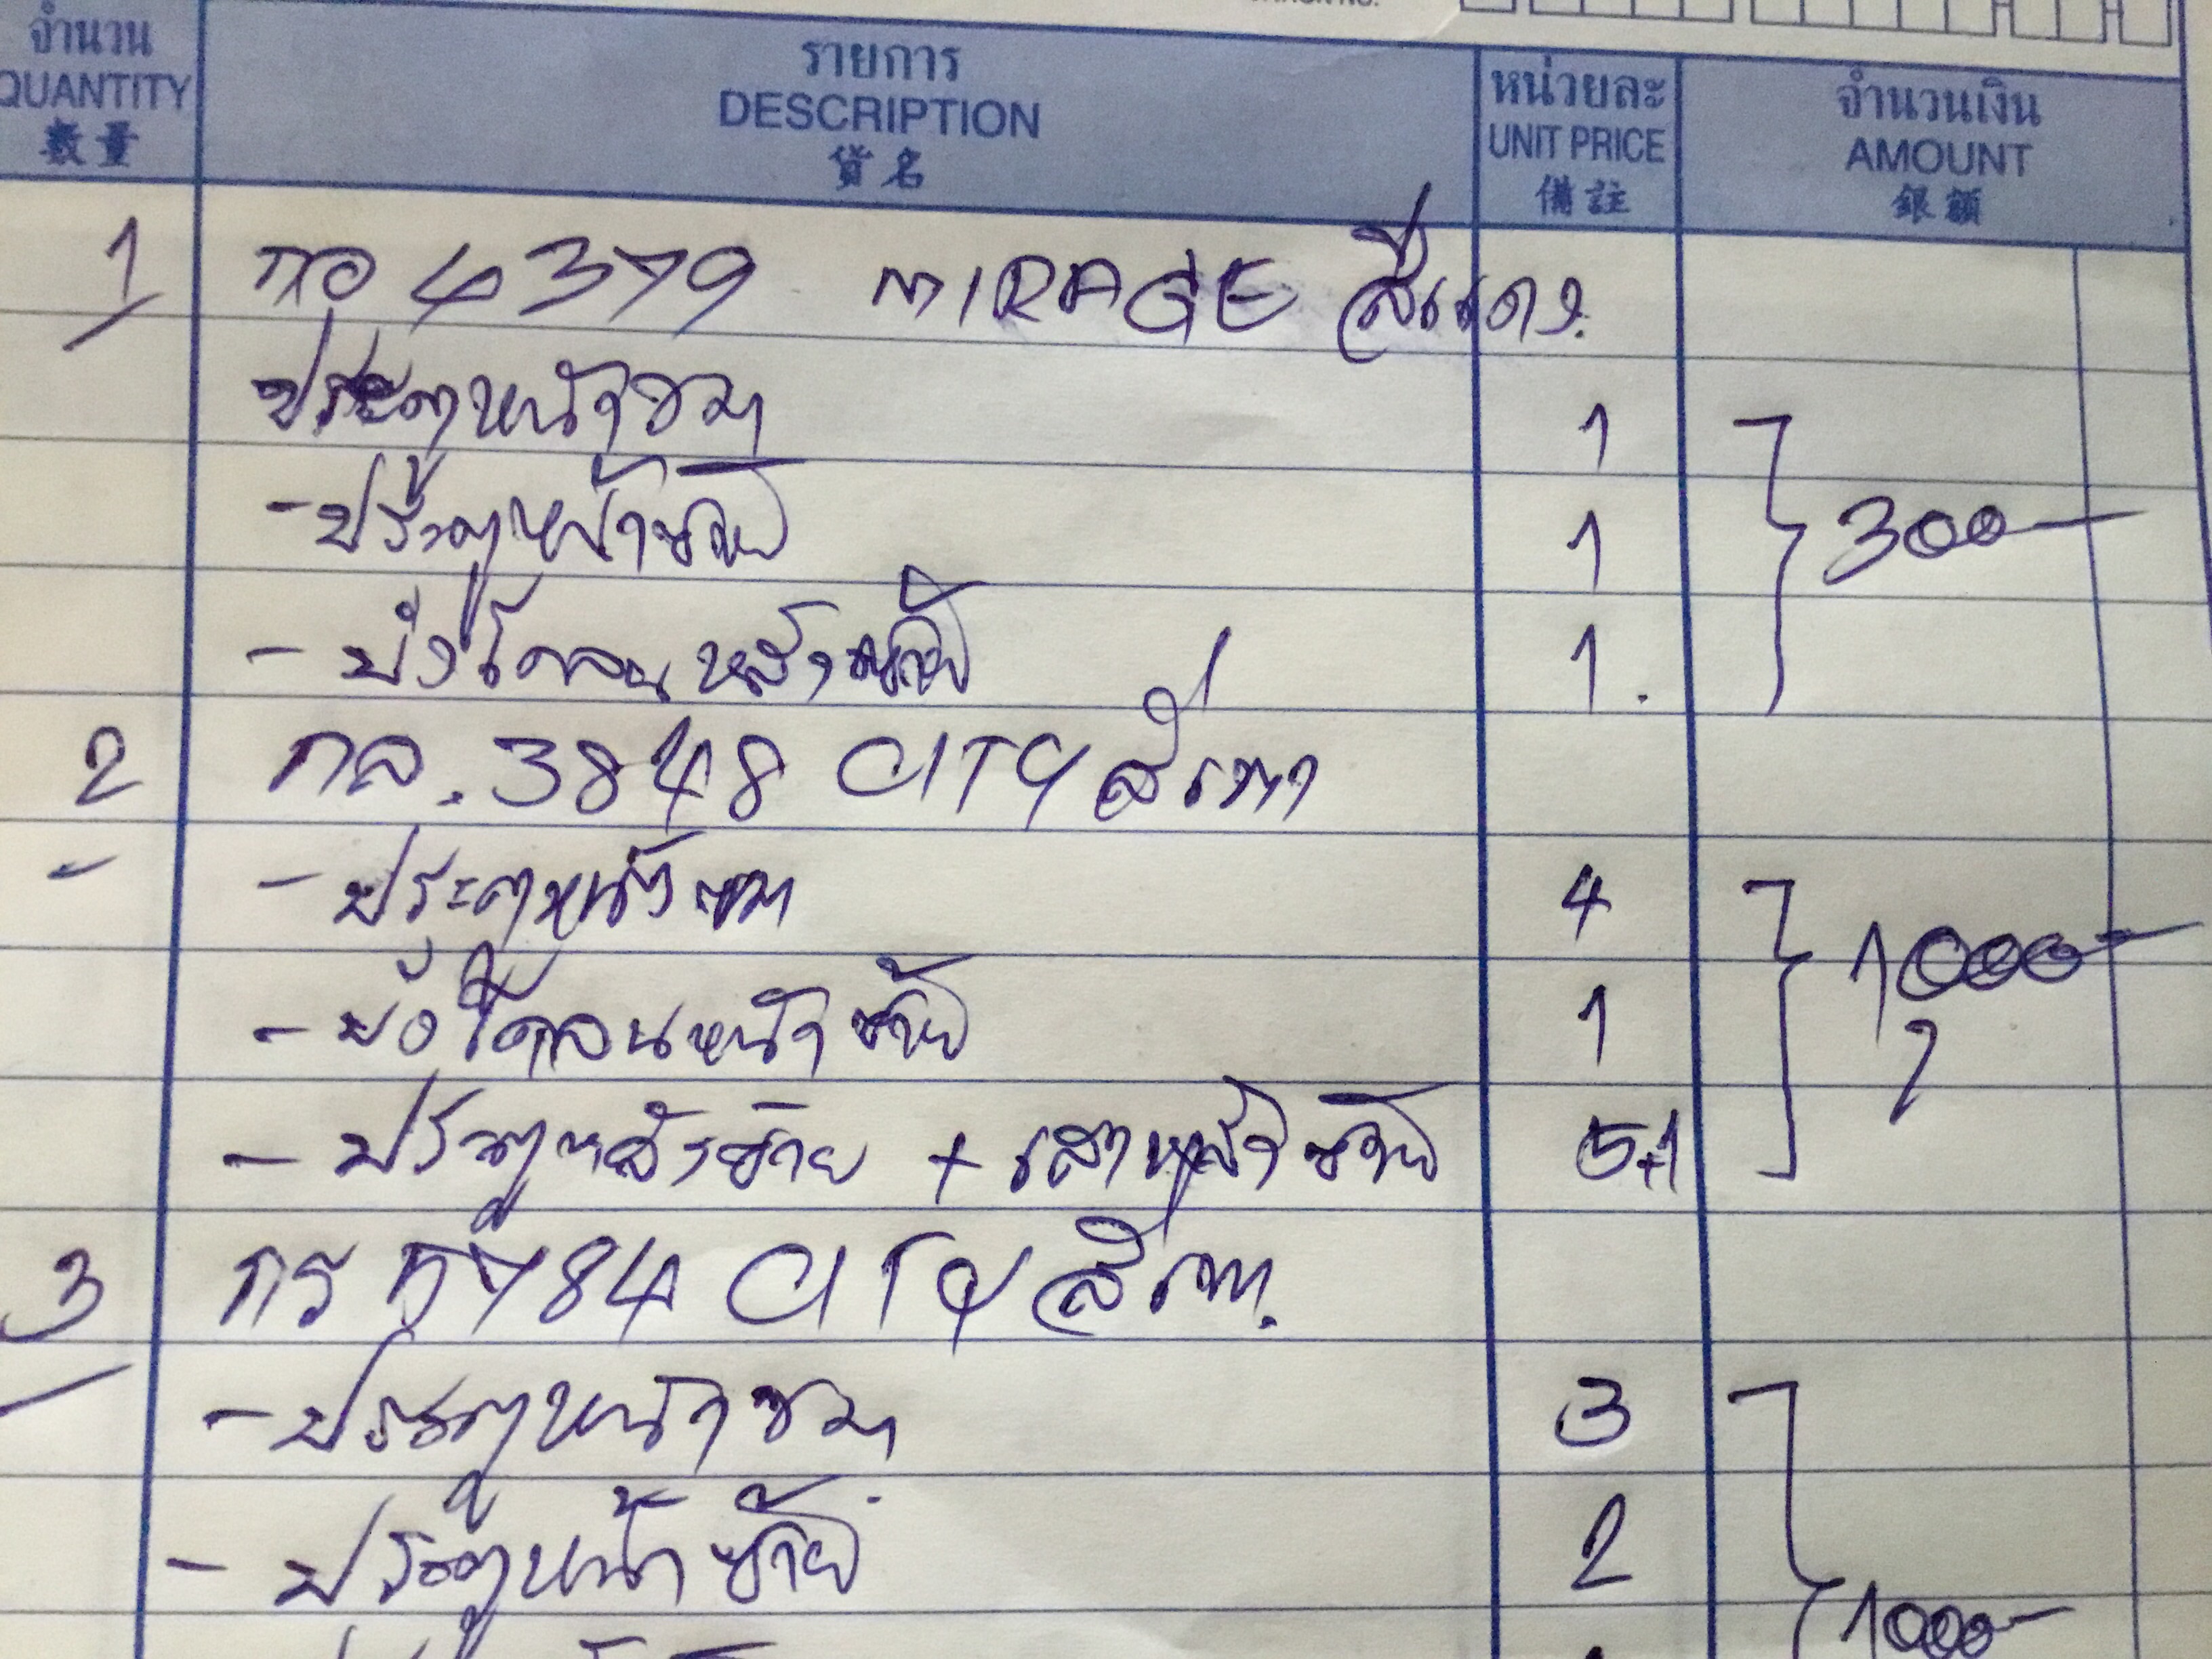 จำนวน รายการ หน่วยละ จำนวนเงิน
QUANTITY DESCRIPTION UNIT PRICE AMOUNT
數量 貨名 備註 銀額
1 กอ 4379 MIRAGE สีแดง.
ประตูหน้าขวา 1
- ประตูหน้าซ้าย 1 300-
- บังโคลนหลังซ้าย 1.
2 กล. 3848 CITY สีเทา
- ประตูหน้าขวา 4
- บังโคลนหน้าซ้าย 1 1000-
- ประตูหลังซ้าย + เสาหลังซ้าย 5+1
3 กร 5784 CITY สีเทา.
- ประตูหน้าขวา 3
- ประตูหน้าซ้าย 2
1000-